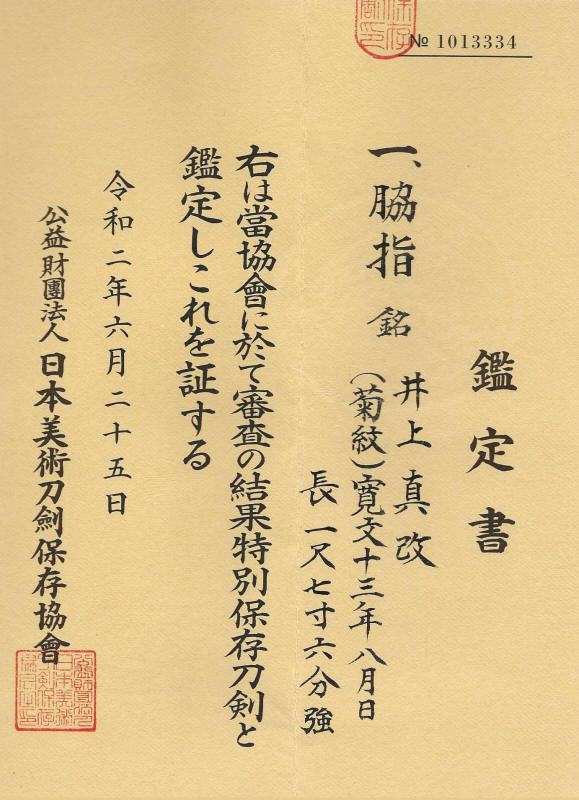 № 1013334
鑑定書
一、脇指 銘 井上真改
(菊紋)寛文十三年八月日
長一尺七寸六分強
右は當協會に於て審査の結果特別保存刀剣と
鑑定しこれを証する
令和二年六月二十五日
公益財團法人日本美術刀劍保存協會